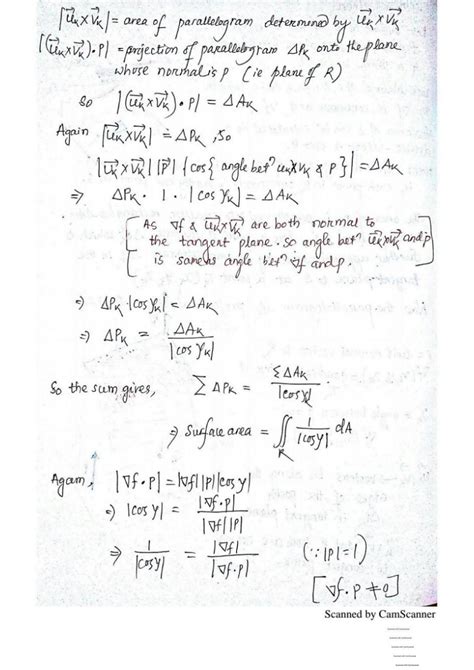 |u⃗ₖ×v⃗ₖ| = area of parallelogram determined by u⃗ₖ×v⃗ₖ
|(u⃗ₖ×v⃗ₖ)·p| = projection of parallelogram ΔPₖ onto the plane
whose normal is p (ie plane of R)
So |(u⃗ₖ×v⃗ₖ)·p| = ΔAₖ
Again |u⃗ₖ×v⃗ₖ| = ΔPₖ, so
|u⃗ₖ×v⃗ₖ| |p⃗| |cos{angle betⁿ uₖ×vₖ & p}| = ΔAₖ
⇒ ΔPₖ · 1 · |cos γₖ| = ΔAₖ
[As ∇f & u⃗ₖ×v⃗ₖ are both normal to
the tangent plane. so angle betⁿ u⃗ₖ×v⃗ₖ and p
is same as angle betⁿ ∇f and p.]
⇒ ΔPₖ · |cos γₖ| = ΔAₖ
⇒ ΔPₖ = ΔAₖ / |cos γₖ|
So the sum gives, ∑ ΔPₖ = ΣΔAₖ / |cos γ|
⇒ Surface area = ∬_R 1/|cos γ| dA
Again, |∇f·p| = |∇f||p||cos γ|
⇒ |cos γ| = |∇f·p| / |∇f||p|
⇒ 1/|cos γ| = |∇f| / |∇f·p| (∵|p|=1)
[∇f·p ≠ 0]
Scanned by CamScanner